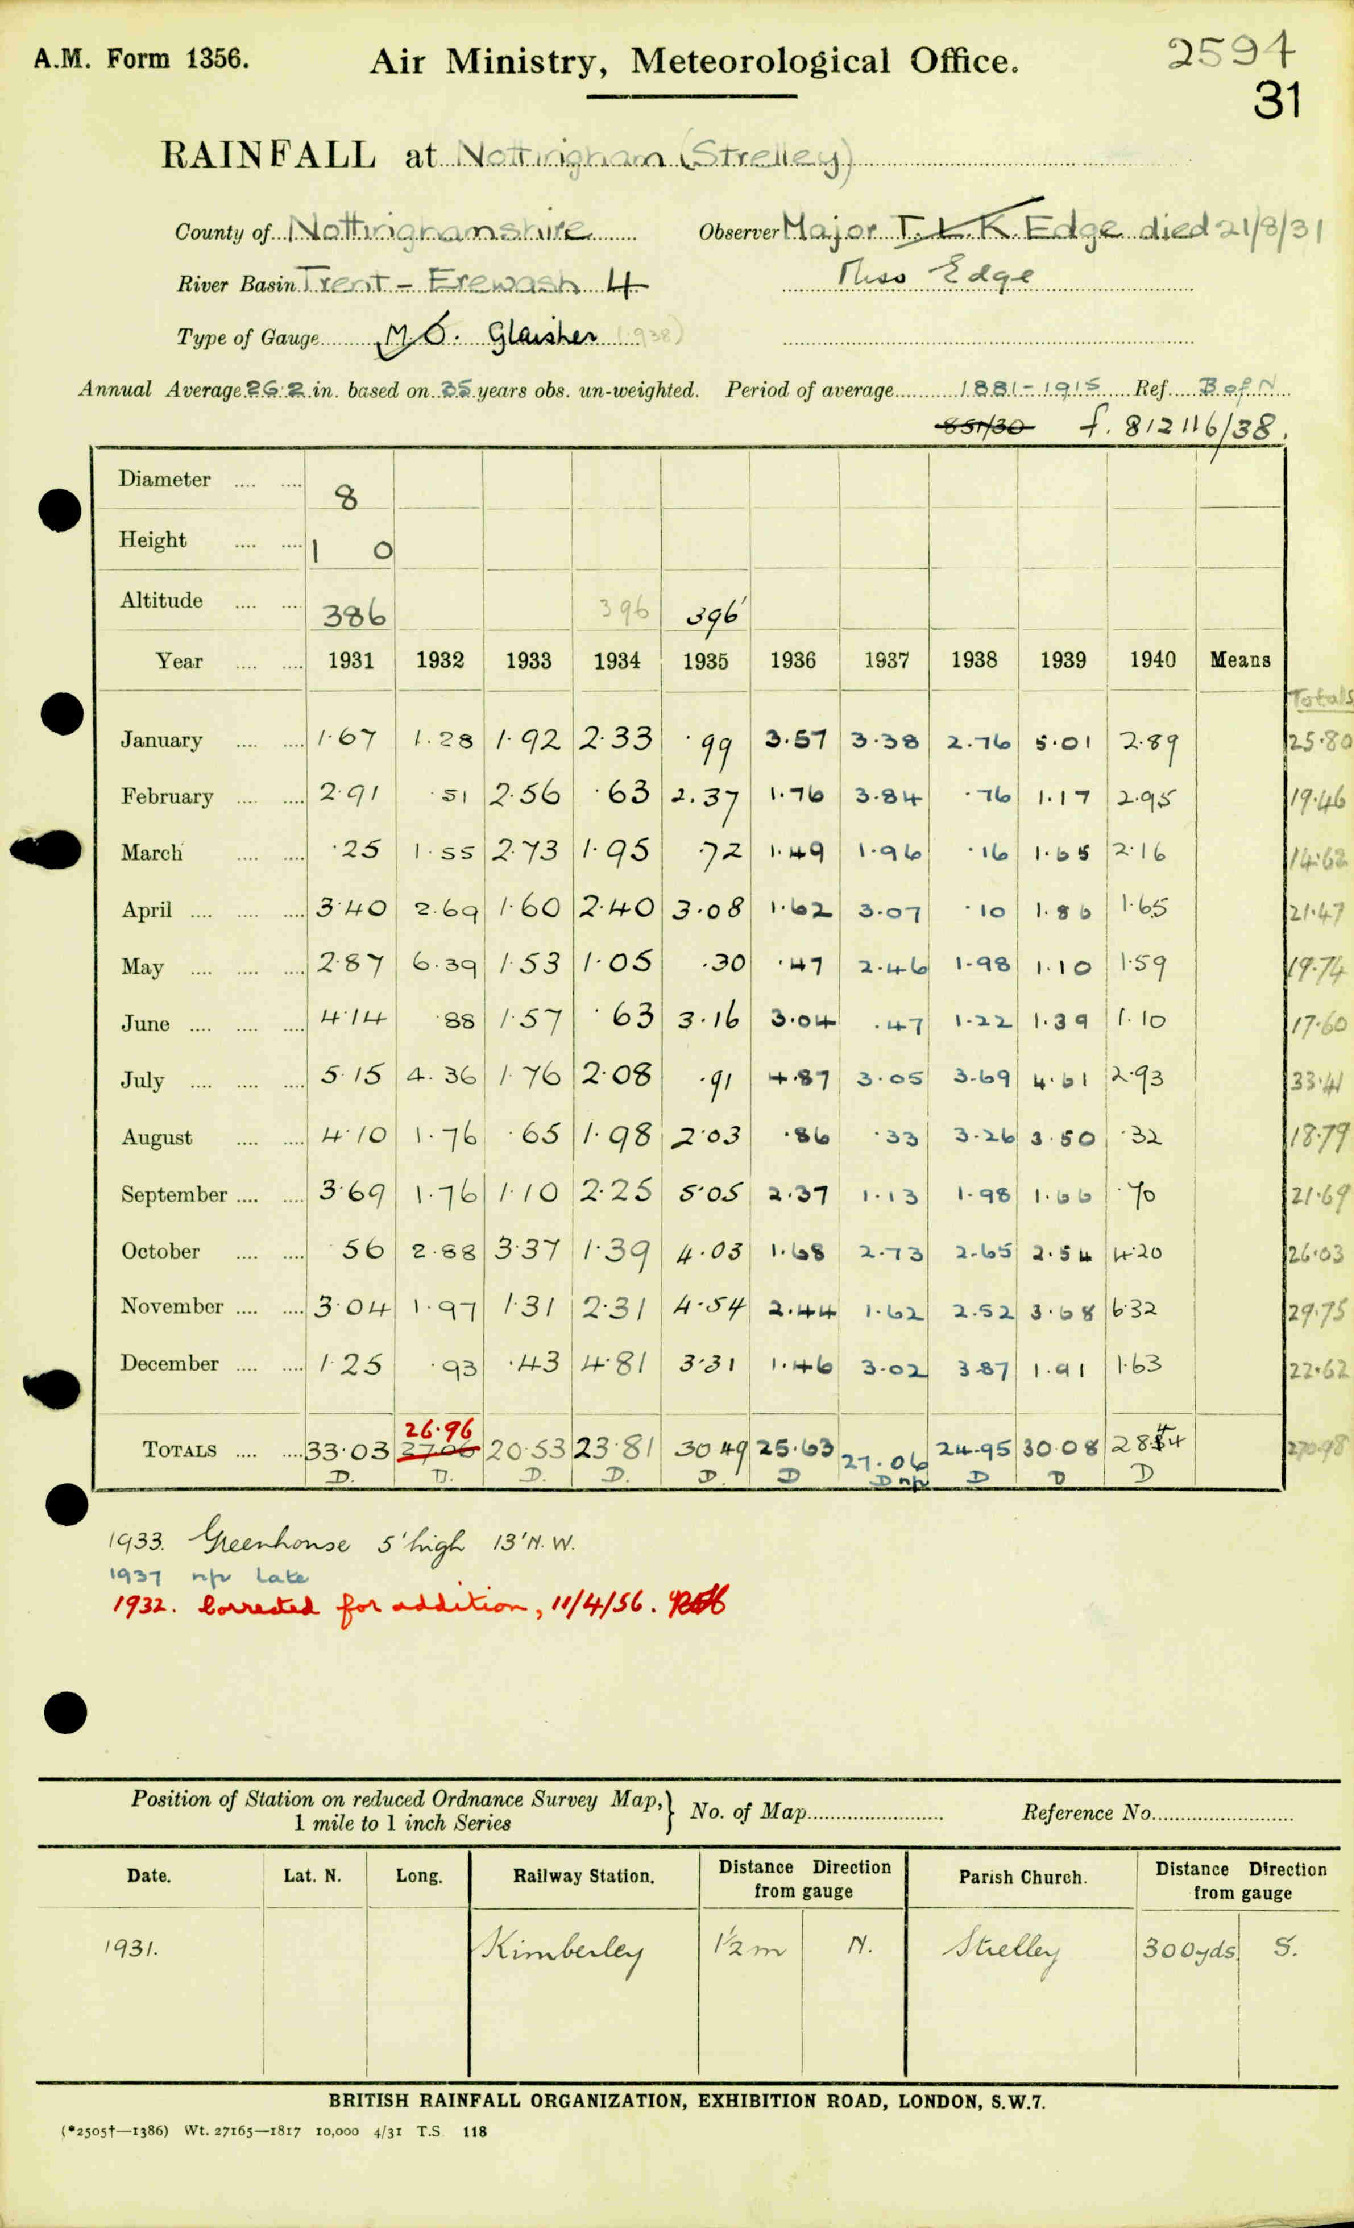 A.M. Form 1356. Air Ministry, Meteorological Office. 2594
31
RAINFALL at Nottingham (Strelley)
County of Nottinghamshire Observer Major T. L. K. Edge died 21/8/31
River Basin Trent - Erewash 4 Miss Edge
Type of Gauge M.O. Glaisher (1938)
Annual Average 26.2 in. based on 35 years obs. un-weighted. Period of average 1881-1915 Ref. B of N
851/30 f. 812116/38.
Diameter 8
Height 1 0
Altitude 386 396 396'
Year 1931 1932 1933 1934 1935 1936 1937 1938 1939 1940 Means
Totals
January 1.67 1.28 1.92 2.33 .99 3.57 3.38 2.76 5.01 2.89 25.80
February 2.91 .51 2.56 .63 2.37 1.76 3.84 .76 1.17 2.95 19.46
March .25 1.55 2.73 1.95 .72 1.49 1.96 .16 1.65 2.16 14.62
April 3.40 2.69 1.60 2.40 3.08 1.62 3.07 .10 1.86 1.65 21.47
May 2.87 6.39 1.53 1.05 .30 .47 2.46 1.98 1.10 1.59 19.74
June 4.14 .88 1.57 .63 3.16 3.04 .47 1.22 1.39 1.10 17.60
July 5.15 4.36 1.76 2.08 .91 4.87 3.05 3.69 4.61 2.93 33.41
August 4.10 1.76 .65 1.98 2.03 .86 .33 3.26 3.50 .32 18.79
September 3.69 1.76 1.10 2.25 5.05 2.37 1.13 1.98 1.66 .70 21.69
October .56 2.88 3.37 1.39 4.03 1.68 2.73 2.65 2.54 4.20 26.03
November 3.04 1.97 1.31 2.31 4.54 2.44 1.62 2.52 3.68 6.32 29.75
December 1.25 .93 .43 4.81 3.31 1.46 3.02 3.87 1.91 1.63 22.62
26.96
TOTALS 33.03 27.06 20.53 23.81 30.49 25.63 27.06 24.95 30.08 28.44 270.98
D. D. D. D. D. D D n/r D D D
1933. Greenhouse 5' high 13' N.W.
1937 n/r Late
1932. Corrected for addition, 11/4/56.
Position of Station on reduced Ordnance Survey Map,} No. of Map Reference No.
1 mile to 1 inch Series
Date. Lat. N. Long. Railway Station. Distance Direction from gauge Parish Church. Distance Direction from gauge
1931. Kimberley 1½ m N. Strelley 300yds S.
BRITISH RAINFALL ORGANIZATION, EXHIBITION ROAD, LONDON, S.W.7.
(*2505†—1386) Wt. 27165—1817 10,000 4/31 T.S. 118